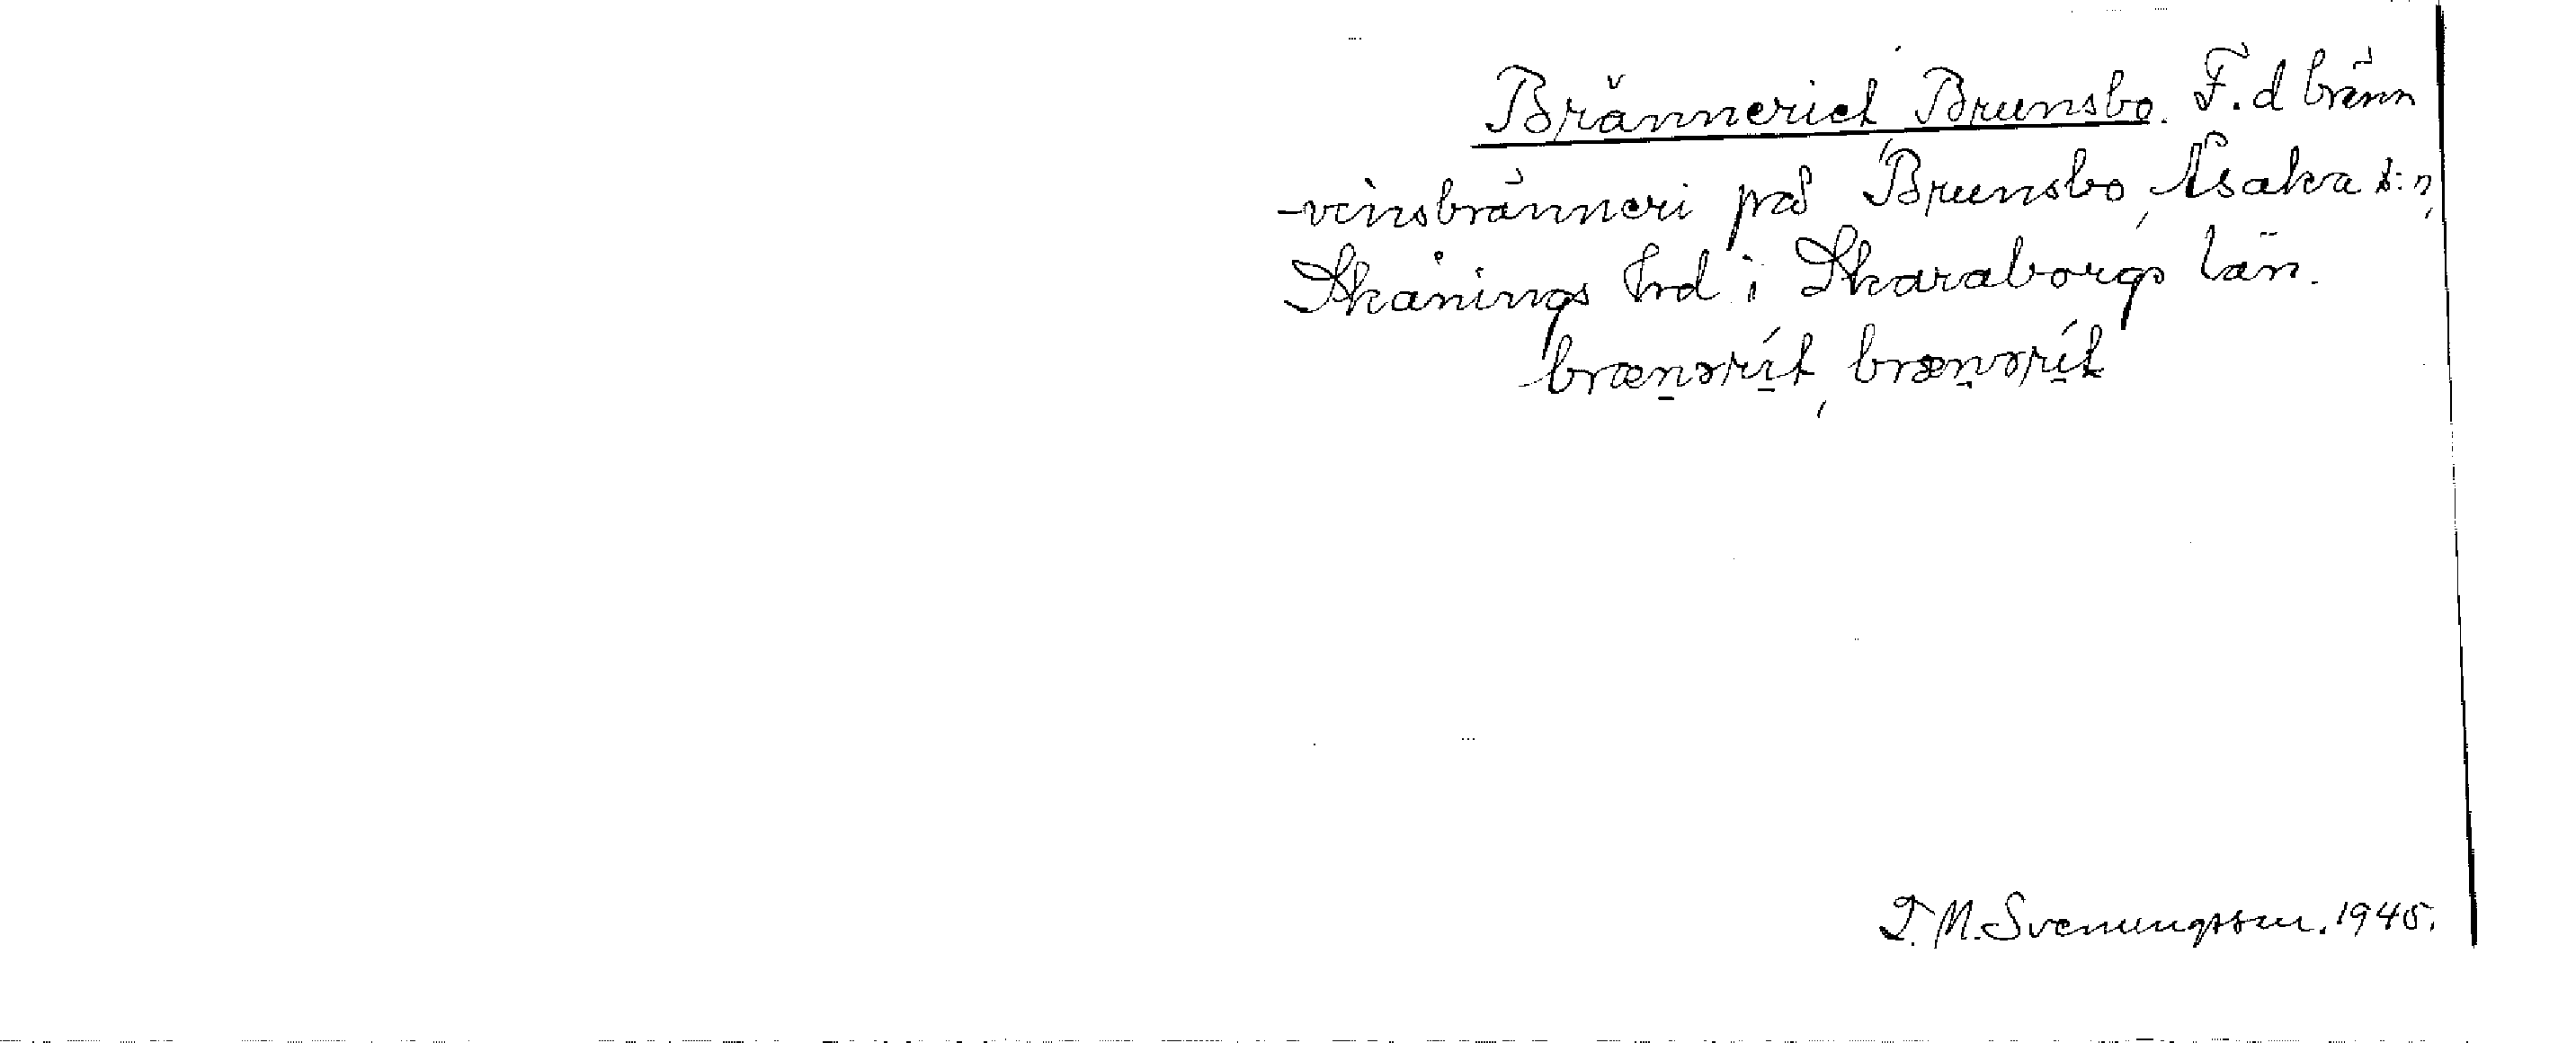 Bränneriet, Brunsbo. F.d bränn
-vinsbränneri på Brunsbo, Åsaka s:n,
Skånings hrd i Skaraborgs län.
brænərít, brænərít
T. M. Svenungsson. 1945.